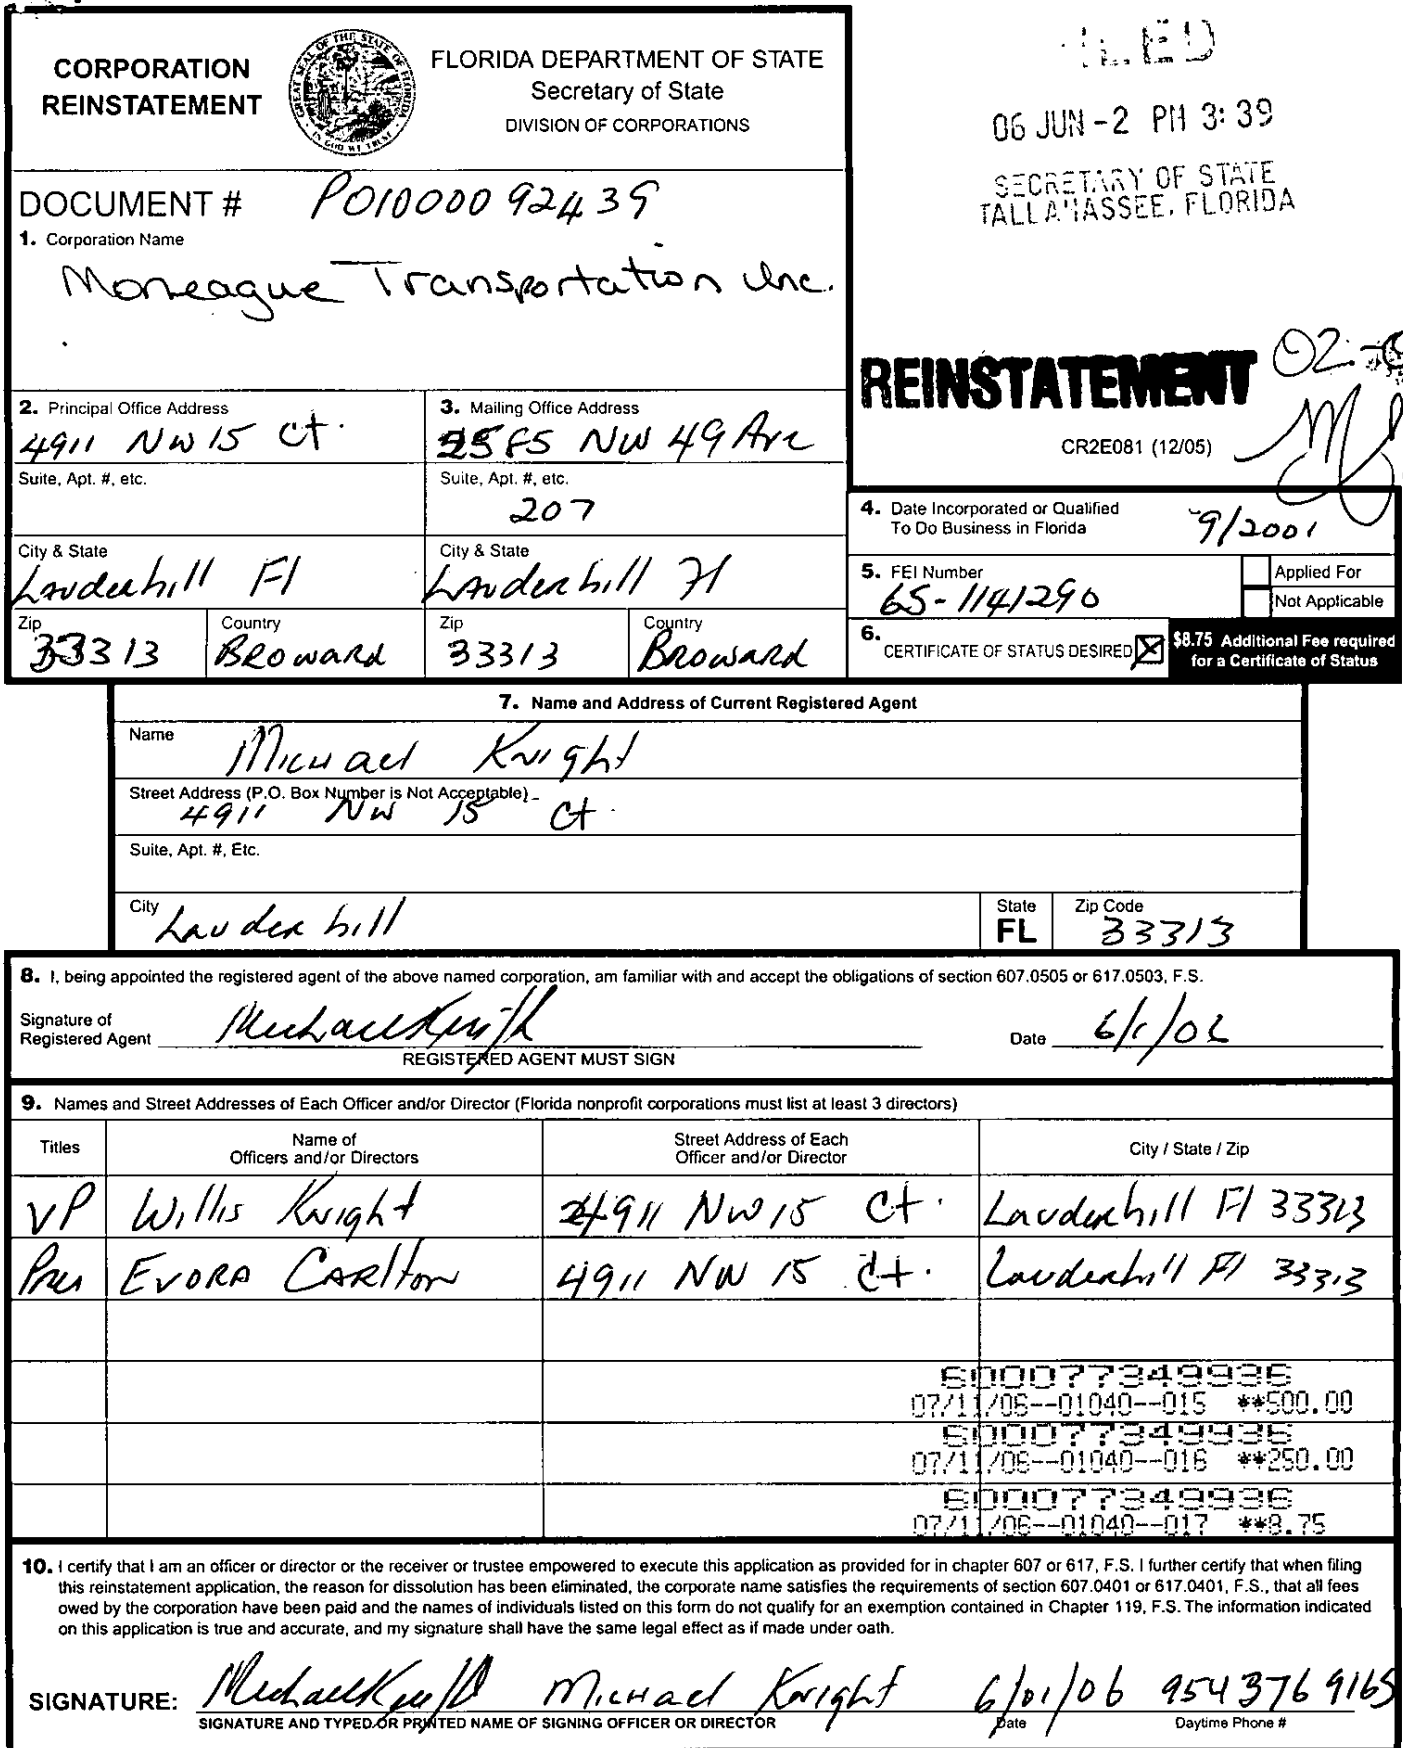 CORPORATION
REINSTATEMENT
FLORIDA DEPARTMENT OF STATE
Secretary of State
DIVISION OF CORPORATIONS
06 JUN -2 PM 3:39
SECRETARY OF STATE
TALLAHASSEE, FLORIDA
DOCUMENT # P01000092439
1. Corporation Name
Moneague Transportation Inc.
REINSTATEMENT
CR2E081 (12/05)
2. Principal Office Address
4911 NW 15 Ct.
3. Mailing Office Address
2585 NW 49 Ave
Suite, Apt. #, etc.
Suite, Apt. #, etc.
207
City & State
Lauderhill Fl
City & State
Lauderhill Fl
Zip
33313
Country
Broward
Zip
33313
Country
Broward
4. Date Incorporated or Qualified
To Do Business in Florida
9/2001
5. FEI Number
65-1141290
Applied For
Not Applicable
6.
CERTIFICATE OF STATUS DESIRED
$8.75 Additional Fee required
for a Certificate of Status
7. Name and Address of Current Registered Agent
Name
Michael Knight
Street Address (P.O. Box Number is Not Acceptable)
4911 NW 15 Ct.
Suite, Apt. #, Etc.
City
Lauderhill
State
FL
Zip Code
33313
8. I, being appointed the registered agent of the above named corporation, am familiar with and accept the obligations of section 607.0505 or 617.0503, F.S.
Signature of
Registered Agent
REGISTERED AGENT MUST SIGN
Date 6/1/06
9. Names and Street Addresses of Each Officer and/or Director (Florida nonprofit corporations must list at least 3 directors)
Titles
Name of
Officers and/or Directors
Street Address of Each
Officer and/or Director
City / State / Zip
VP Willis Knight 4911 NW 15 Ct. Lauderhill Fl 33313
Pres Evora Carlton 4911 NW 15 Ct. Lauderhill Fl 33313
600077349936
07/11/06--01040--015 **500.00
600077349936
07/11/06--01040--016 **250.00
600077349936
07/11/06--01040--017 **8.75
10. I certify that I am an officer or director or the receiver or trustee empowered to execute this application as provided for in chapter 607 or 617, F.S. I further certify that when filing
this reinstatement application, the reason for dissolution has been eliminated, the corporate name satisfies the requirements of section 607.0401 or 617.0401, F.S., that all fees
owed by the corporation have been paid and the names of individuals listed on this form do not qualify for an exemption contained in Chapter 119, F.S. The information indicated
on this application is true and accurate, and my signature shall have the same legal effect as if made under oath.
SIGNATURE: Michael Knight 6/01/06 954 376 9165
SIGNATURE AND TYPED OR PRINTED NAME OF SIGNING OFFICER OR DIRECTOR
Date
Daytime Phone #